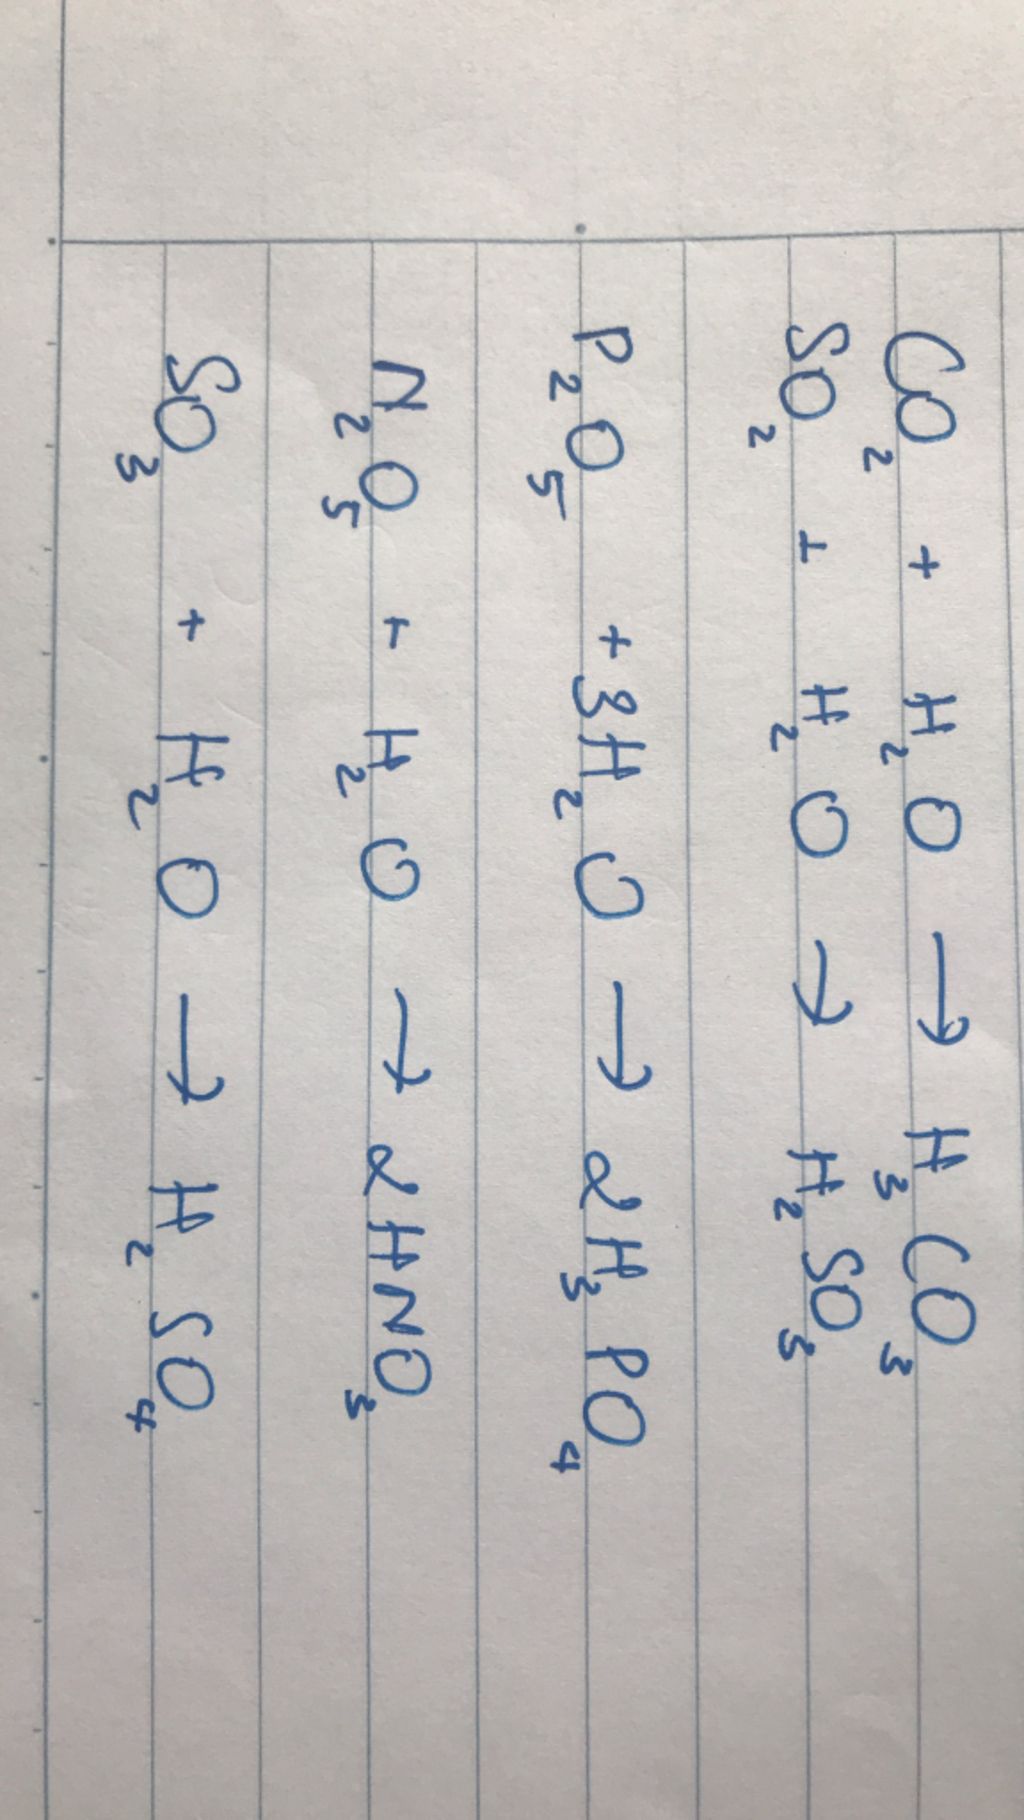 CO₂ + H₂O → H₃CO₃
SO₂ + H₂O → H₂SO₃
P₂O₅ + 3H₂O → 2H₃PO₄
N₂O₅ + H₂O → 2HNO₃
SO₃ + H₂O → H₂SO₄